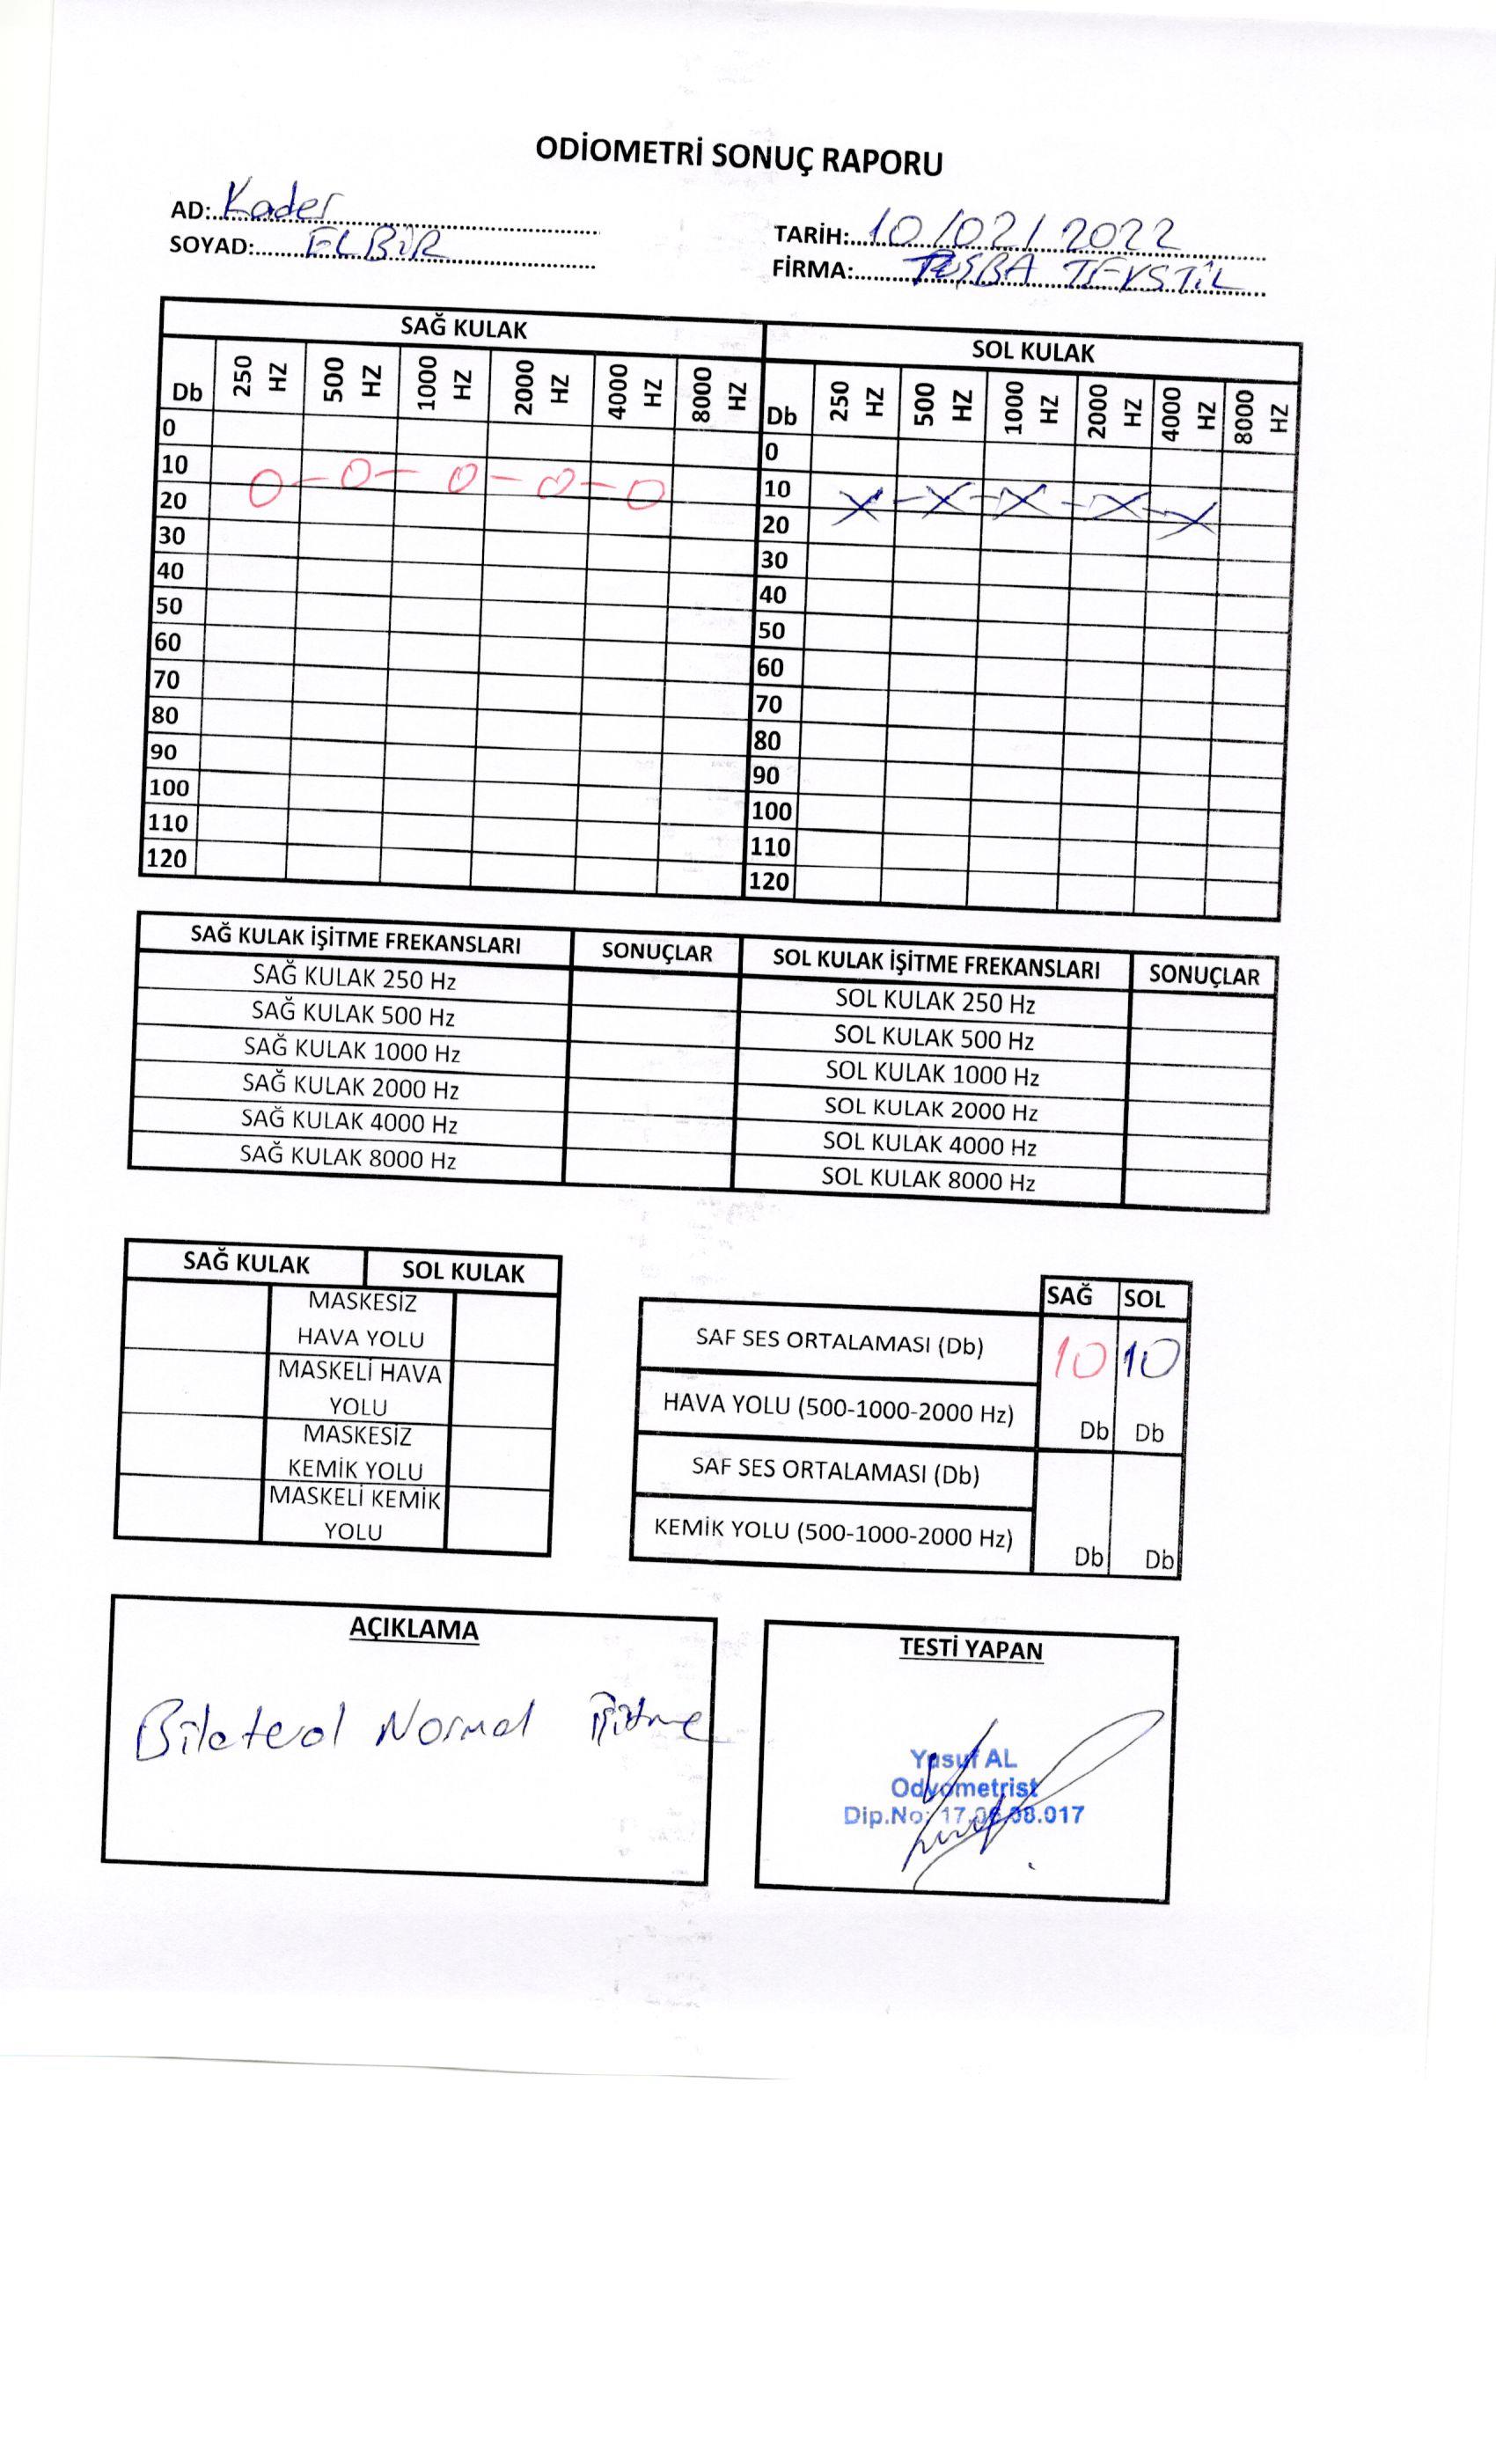 ODİOMETRİ SONUÇ RAPORU
AD: Kader
SOYAD: ELBİR
TARİH: 10/02/2022
FİRMA: TUŞBA TEKSTİL
SAĞ KULAK SOL KULAK
Db 250 HZ 500 HZ 1000 HZ 2000 HZ 4000 HZ 8000 HZ Db 250 HZ 500 HZ 1000 HZ 2000 HZ 4000 HZ 8000 HZ
0 0
10 10
20 20
30 30
40 40
50 50
60 60
70 70
80 80
90 90
100 100
110 110
120 120
SAĞ KULAK İŞİTME FREKANSLARI SONUÇLAR SOL KULAK İŞİTME FREKANSLARI SONUÇLAR
SAĞ KULAK 250 Hz SOL KULAK 250 Hz
SAĞ KULAK 500 Hz SOL KULAK 500 Hz
SAĞ KULAK 1000 Hz SOL KULAK 1000 Hz
SAĞ KULAK 2000 Hz SOL KULAK 2000 Hz
SAĞ KULAK 4000 Hz SOL KULAK 4000 Hz
SAĞ KULAK 8000 Hz SOL KULAK 8000 Hz
SAĞ KULAK SOL KULAK
MASKESİZ
HAVA YOLU
MASKELİ HAVA
YOLU
MASKESİZ
KEMİK YOLU
MASKELİ KEMİK
YOLU
SAĞ SOL
SAF SES ORTALAMASI (Db) 10 10
HAVA YOLU (500-1000-2000 Hz) Db Db
SAF SES ORTALAMASI (Db)
KEMİK YOLU (500-1000-2000 Hz) Db Db
AÇIKLAMA
Bilateral Normal İşitme
TESTİ YAPAN
Yusuf AL
Odyometrist
Dip.No: 17.06.08.017